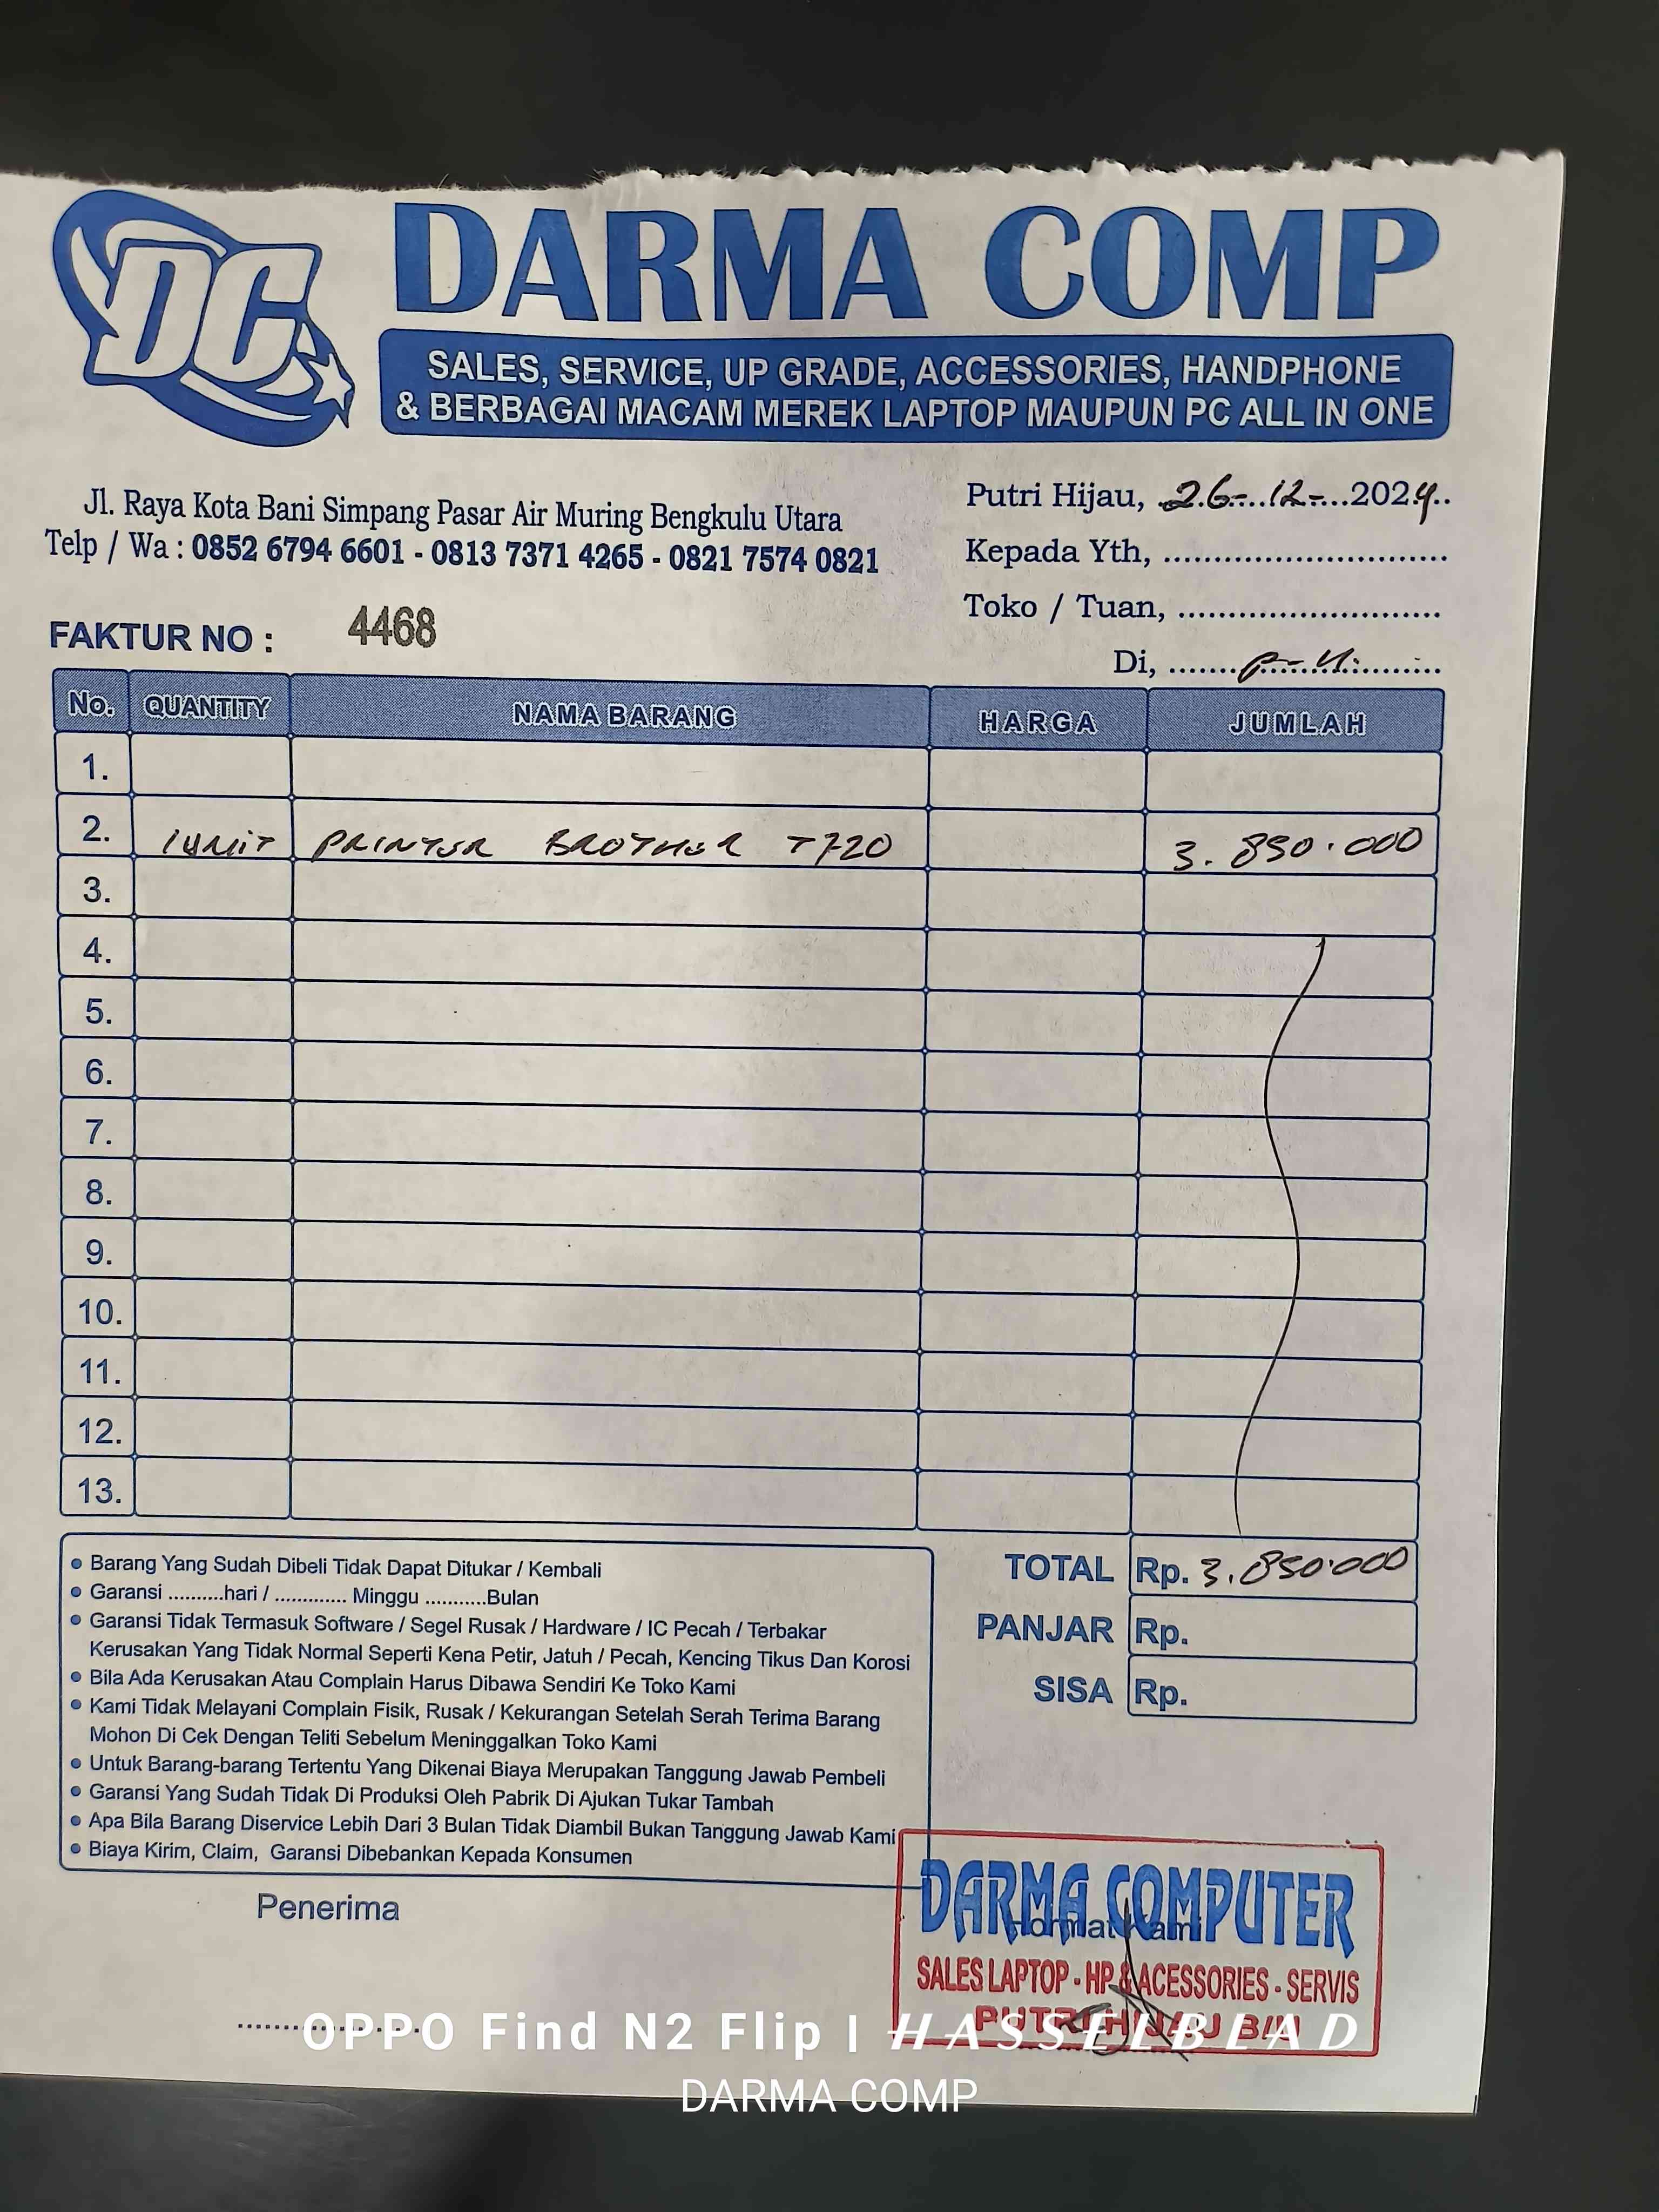 DC
DARMA COMP
SALES, SERVICE, UP GRADE, ACCESSORIES, HANDPHONE
& BERBAGAI MACAM MEREK LAPTOP MAUPUN PC ALL IN ONE
Jl. Raya Kota Bani Simpang Pasar Air Muring Bengkulu Utara
Telp / Wa : 0852 6794 6601 - 0813 7371 4265 - 0821 7574 0821
Putri Hijau, 26-12-2024
Kepada Yth, ............................
Toko / Tuan, ..........................
FAKTUR NO : 4468
Di, ....... P-H ...........
No. QUANTITY NAMA BARANG HARGA JUMLAH
1.
2. 1 UNIT PRINTER BROTHER T720 3.850.000
3.
4.
5.
6.
7.
8.
9.
10.
11.
12.
13.
• Barang Yang Sudah Dibeli Tidak Dapat Ditukar / Kembali
• Garansi ..........hari / ............. Minggu ...........Bulan
• Garansi Tidak Termasuk Software / Segel Rusak / Hardware / IC Pecah / Terbakar
Kerusakan Yang Tidak Normal Seperti Kena Petir, Jatuh / Pecah, Kencing Tikus Dan Korosi
• Bila Ada Kerusakan Atau Complain Harus Dibawa Sendiri Ke Toko Kami
• Kami Tidak Melayani Complain Fisik, Rusak / Kekurangan Setelah Serah Terima Barang
Mohon Di Cek Dengan Teliti Sebelum Meninggalkan Toko Kami
• Untuk Barang-barang Tertentu Yang Dikenai Biaya Merupakan Tanggung Jawab Pembeli
• Garansi Yang Sudah Tidak Di Produksi Oleh Pabrik Di Ajukan Tukar Tambah
• Apa Bila Barang Diservice Lebih Dari 3 Bulan Tidak Diambil Bukan Tanggung Jawab Kami
• Biaya Kirim, Claim, Garansi Dibebankan Kepada Konsumen
TOTAL Rp. 3.850.000
PANJAR Rp.
SISA Rp.
Penerima
Hormat Kami
DARMA COMPUTER
SALES LAPTOP - HP & ACESSORIES - SERVIS
PUTRI HIJAU B/U
OPPO Find N2 Flip | HASSELBLAD
DARMA COMP